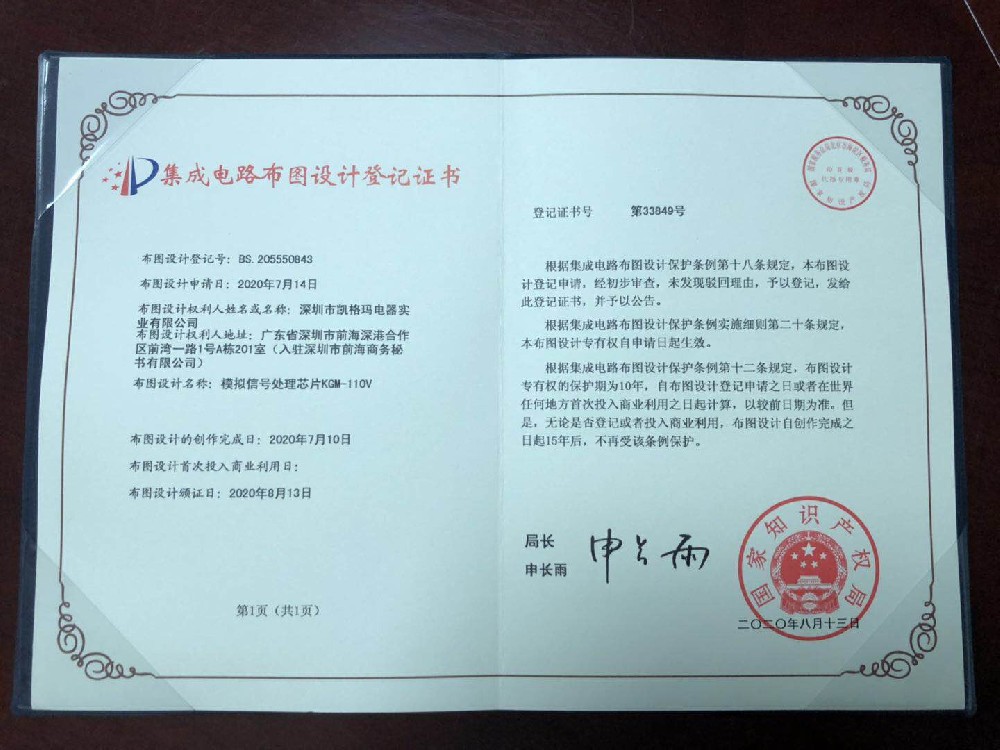 集成电路布图设计登记证书
布图设计登记号：BS.205550843
布图设计申请日：2020年7月14日
布图设计权利人姓名或名称：深圳市凯格玛电器实
业有限公司
布图设计权利人地址：广东省深圳市前海深港合作
区前湾一路1号A栋201室（入驻深圳市前海商务秘
书有限公司）
布图设计名称：模拟信号处理芯片KGM-110V
布图设计的创作完成日：2020年7月10日
布图设计首次投入商业利用日：
布图设计颁证日：2020年8月13日
第1页（共1页）
登记证书号 第33849号
根据集成电路布图设计保护条例第十八条规定，本布图设
计登记申请，经初步审查，未发现驳回理由，予以登记，发给
此登记证书，并予以公告。
根据集成电路布图设计保护条例实施细则第二十条规定，
本布图设计专有权自申请日起生效。
根据集成电路布图设计保护条例第十二条规定，布图设计
专有权的保护期为10年，自布图设计登记申请之日或者在世界
任何地方首次投入商业利用之日起计算，以较前日期为准。但
是，无论是否登记或者投入商业利用，布图设计自创作完成之
日起15年后，不再受该条例保护。
局长
申长雨
申长雨
国家知识产权局
二〇二〇年八月十三日